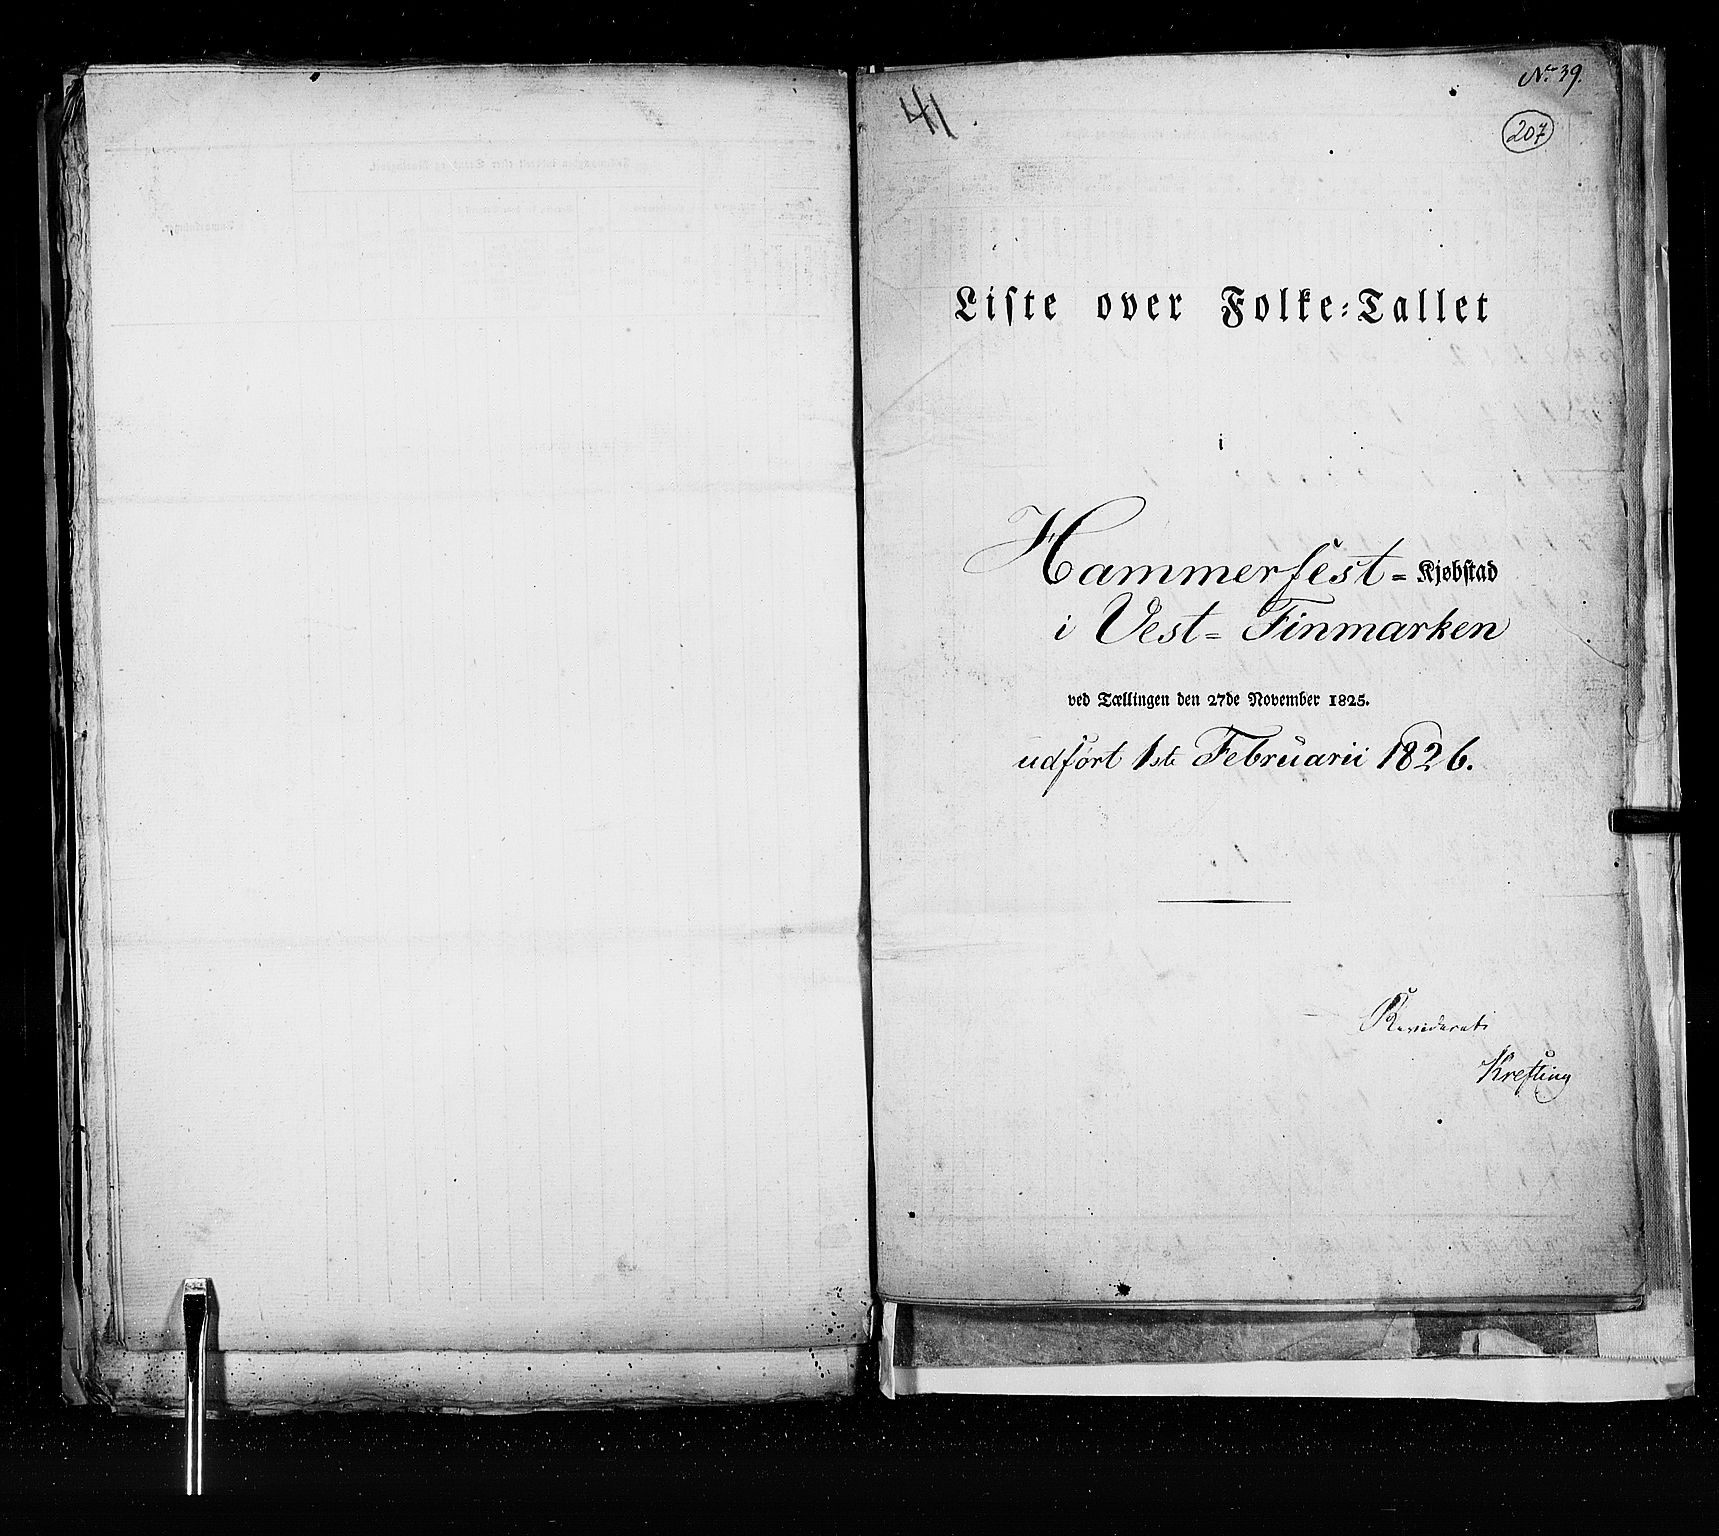 No 39.
41
207
Liste over Folke=Tallet
i
Hammerfest= Kjøbstad
i Vest= Finmarken
ved Tællingen den 27de November 1825.
udført 1ste Februarii 1826.
Revideret
Krefting